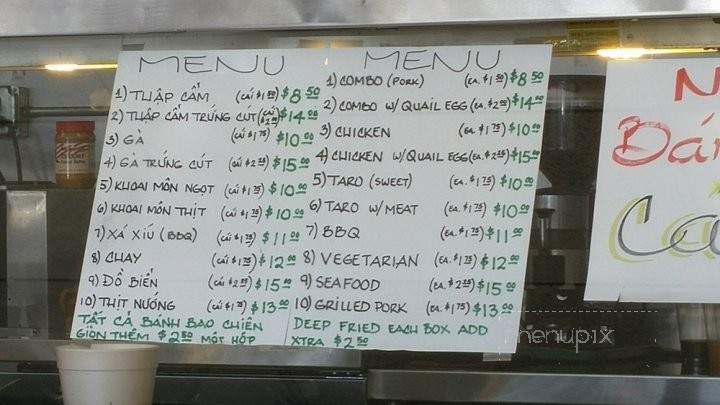 MENU
1) THẬP CẨM (cái $1.50) $8.50
2) THẬP CẨM TRỨNG CÚT (cái $2.00) $14.00
3) GÀ (cái $1.75) $10.00
4) GÀ TRỨNG CÚT (cái $2.25) $15.00
5) KHOAI MÔN NGỌT (cái $1.75) $10.00
6) KHOAI MÔN THỊT (cái $1.75) $10.00
7) XÁ XÍU (BBQ) (cái $1.75) $11.00
8) CHAY (cái $1.75) $12.00
9) ĐỒ BIỂN (cái $2.25) $15.00
10) THỊT NƯỚNG (cái $1.75) $13.00
TẤT CẢ BÁNH BAO CHIÊN
GIÒN THÊM $2.50 MỘT HỘP
MENU
1) COMBO (PORK) (ea. $1.50) $8.50
2) COMBO W/ QUAIL EGG (ea. $2.00) $14.00
3) CHICKEN (ea. $1.75) $10.00
4) CHICKEN W/QUAIL EGG (ea. $2.25) $15.00
5) TARO (SWEET) (ea. $1.75) $10.00
6) TARO W/MEAT (ea. $1.75) $10.00
7) BBQ (ea. $1.75) $11.00
8) VEGETARIAN (ea. $1.75) $12.00
9) SEAFOOD (ea. $2.25) $15.00
10) GRILLED PORK (ea. $1.75) $13.00
DEEP FRIED EACH BOX ADD
XTRA $2.50
menupix